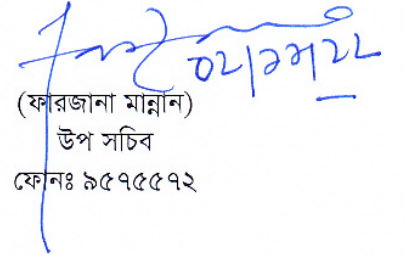 ০২/১১/২২
(ফারজানা মান্নান)
উপ সচিব
ফোনঃ ৯৫৭৫৫৭২